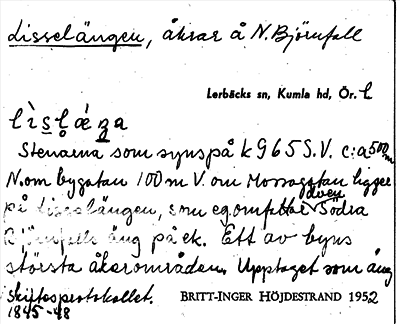 Lisselängen, åkrar å N. Björnfall
Lerbäcks sn, Kumla hd, Ör. l
Stenarna som syns på k 965 S.V. c:a 500 m
N. om bygatan 100 m V. om Mossagatan ligger
på Lisselängen, som eg. omfattar även Södra
Björnfalls äng på ek. Ett av byns
största åkerområden. Upptaget som äng
skiftesprotokollet.
1845-48
BRITT-INGER HÖJDESTRAND 1952